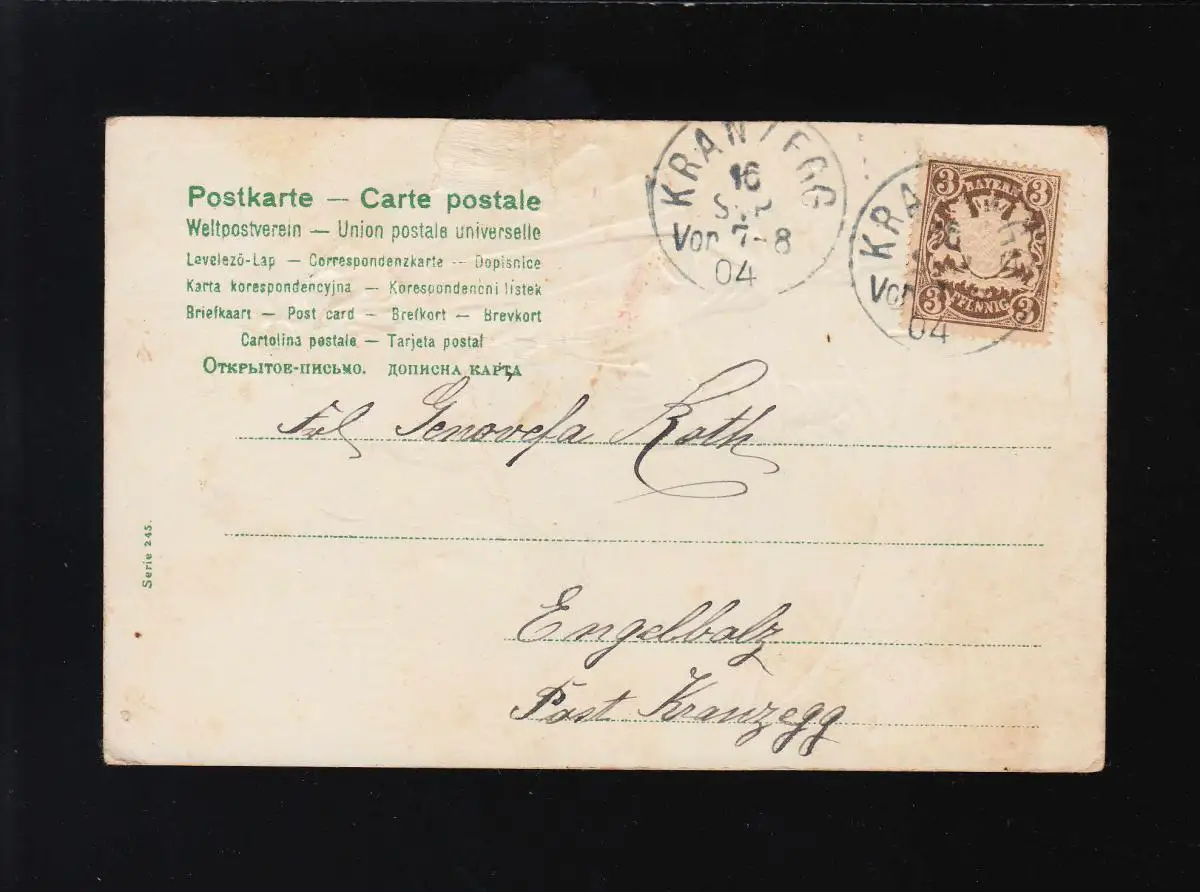 Postkarte — Carte postale
Weltpostverein — Union postale universelle
Levelező-Lap — Correspondenzkarte — Dopisnice
Karta korespondencyjna — Korespondenčni listek
Briefkaart — Post card — Brefkort — Brevkort
Cartolina postale — Tarjeta postal
Открытое-письмо. дописна карта
KRANZEGG
16
SEP
Vor 7-8
04
KRA
Vor
04
3 BAYERN 3
3 PFENNIG 3
Frl Genovefa Roth
Engelbolz
Post Kranzegg
Serie 245.